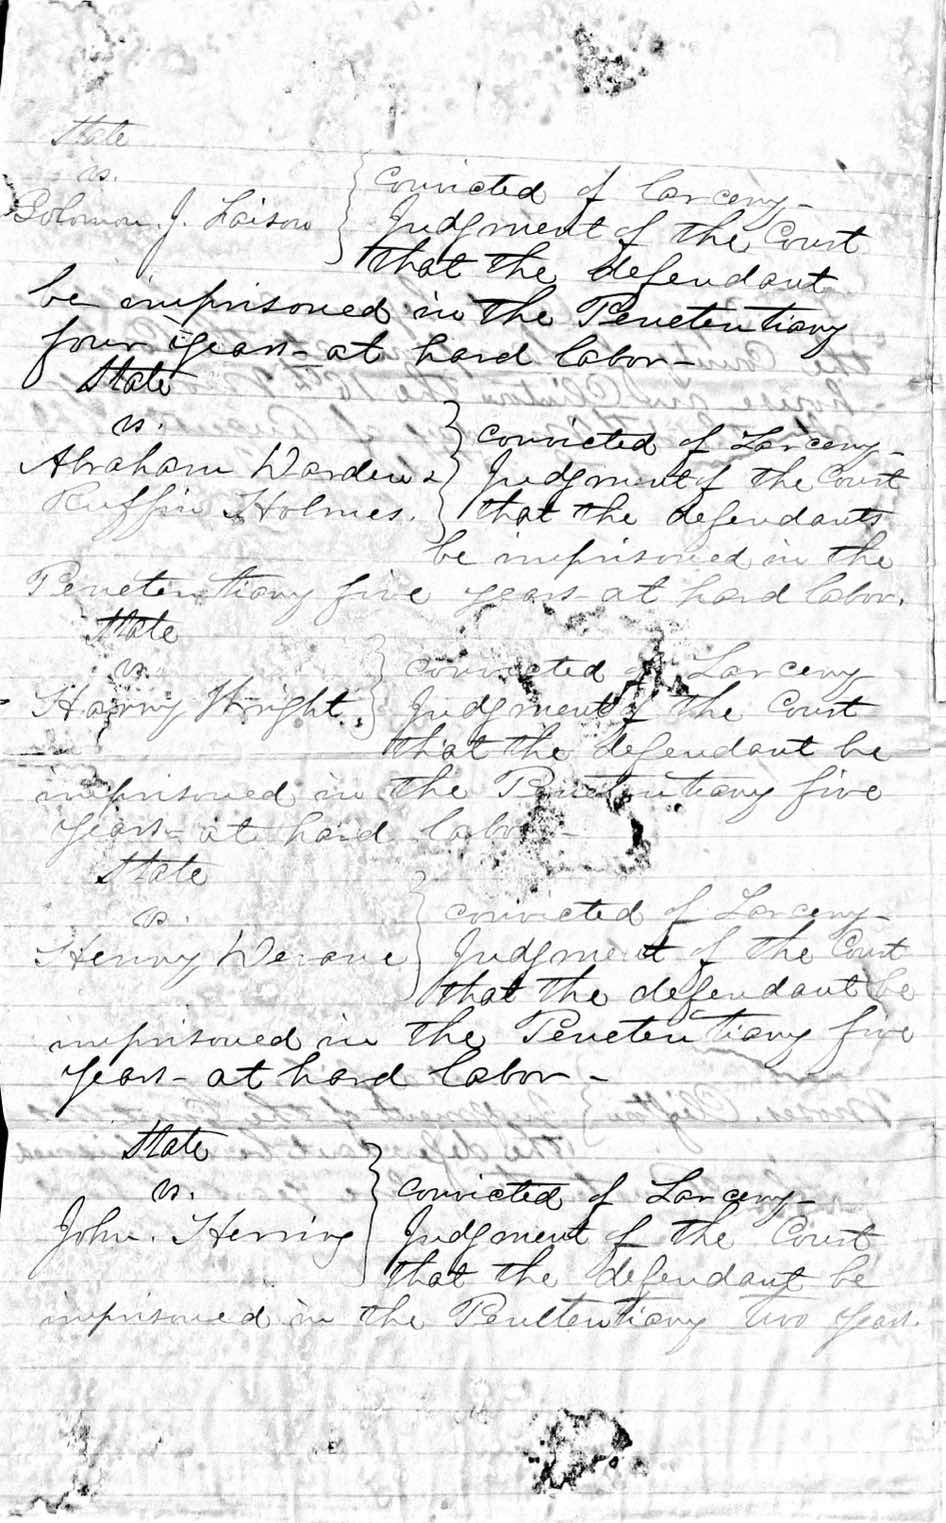 State
vs.
Solomon J. Faison
convicted of larceny -
Judgment of the Court
that the defendant
be imprisoned in the Penetentiary
four years - at hard labor -
State
vs.
Abraham Warden &
Ruffin Holmes.
convicted of Larceny -
Judgment of the Court
that the defendants
be imprisoned in the
Penetentiary five years - at hard labor.
State
vs.
Harry Wright.
convicted of Larceny
Judgment of the Court
that the defendant be
imprisoned in the Penetentiary five
years - at hard labor -
State
vs.
Henry Devane
convicted of Larceny -
Judgment of the Court
that the defendant be
imprisoned in the Penetentiary five
years - at hard labor -
State
vs.
John. Herring
convicted of Larceny -
Judgment of the Court
that the defendant be
imprisoned in the Penetentiary two years.